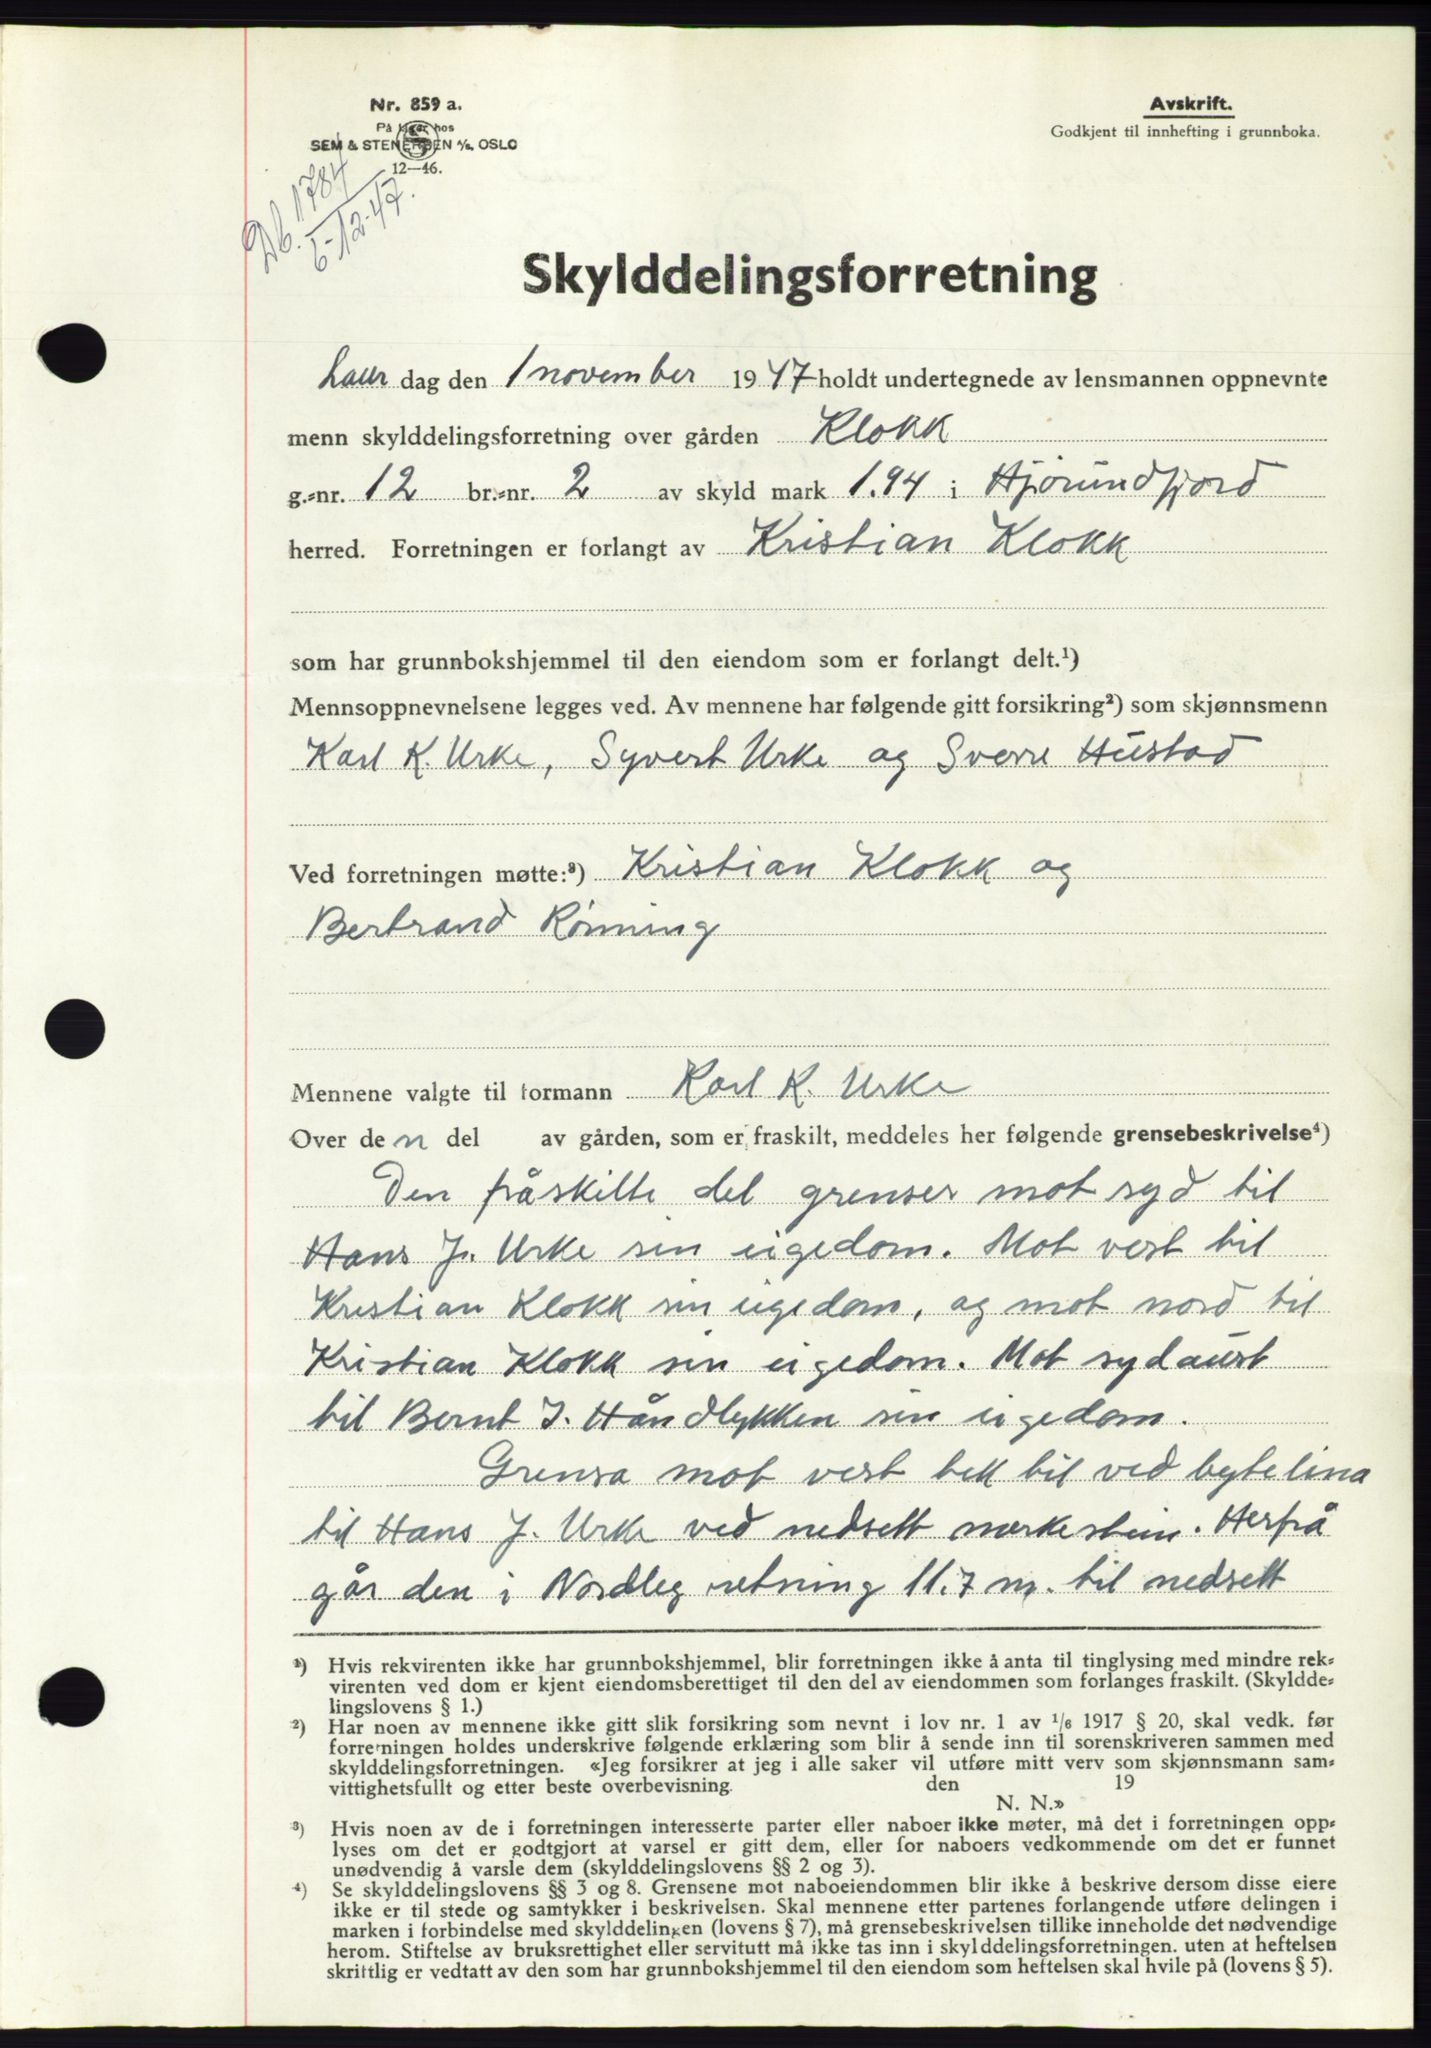 Nr. 859 a.
På lager hos
SEM & STENERSEN A/S, OSLO
12—46.
Avskrift.
Godkjent til innhefting i grunnboka.
Db. 1784
6-12-47.
Skylddelingsforretning
Laur dag den 1 november 1947 holdt undertegnede av lensmannen oppnevnte
menn skylddelingsforretning over gården Klokk
g.=nr. 12 br.=nr. 2 av skyld mark 1.94 i Hjørundfjord
herred. Forretningen er forlangt av Kristian Klokk
som har grunnbokshjemmel til den eiendom som er forlangt delt.¹)
Mennsoppnevnelsene legges ved. Av mennene har følgende gitt forsikring²) som skjønnsmenn
Karl K. Urke, Syvert Urke og Sverre Hustad
Ved forretningen møtte:³) Kristian Klokk og
Bertrand Rønning
Mennene valgte til formann Karl K. Urke
Over den del av gården, som er fraskilt, meddeles her følgende grensebeskrivelse⁴)
Den fråskilte del grenser mot syd til
Hans J. Urke sin eigedom. Mot vest til
Kristian Klokk sin eigedom, og mot nord til
Kristian Klokk sin eigedom. Mot sydaust
til Bernt J. Håndlykken sin eigedom.
Grensa mot vest tek til ved bytelina
til Hans J. Urke ved nedsett merkestein. Herfrå
går den i Nordleg retning 11.7 m. til nedsett
¹) Hvis rekvirenten ikke har grunnbokshjemmel, blir forretningen ikke å anta til tinglysing med mindre rek=
virenten ved dom er kjent eiendomsberettiget til den del av eiendommen som forlanges fraskilt. (Skyldde=
lingslovens § 1.)
²) Har noen av mennene ikke gitt slik forsikring som nevnt i lov nr. 1 av 1/6 1917 § 20, skal vedk. før
forretningen holdes underskrive følgende erklæring som blir å sende inn til sorenskriveren sammen med
skylddelingsforretningen. «Jeg forsikrer at jeg i alle saker vil utføre mitt verv som skjønnsmann sam=
vittighetsfullt og etter beste overbevisning. den 19
N. N.»
³) Hvis noen av de i forretningen interesserte parter eller naboer ikke møter, må det i forretningen opp=
lyses om det er godtgjort at varsel er gitt dem, eller for naboers vedkommende om det er funnet
unødvendig å varsle dem (skylddelingslovens §§ 2 og 3).
⁴) Se skylddelingslovens §§ 3 og 8. Grensene mot naboeiendommen blir ikke å beskrive dersom disse eiere
ikke er til stede og samtykker i beskrivelsen. Skal mennene etter partenes forlangende utføre delingen i
marken i forbindelse med skylddelingen (lovens § 7), må grensebeskrivelsen tillike inneholde det nødvendige
herom. Stiftelse av bruksrettighet eller servitutt må ikke tas inn i skylddelingsforretningen. uten at heftelsen
skriftlig er vedtatt av den som har grunnbokshjemmel til den eiendom som heftelsen skal hvile på (lovens § 5).